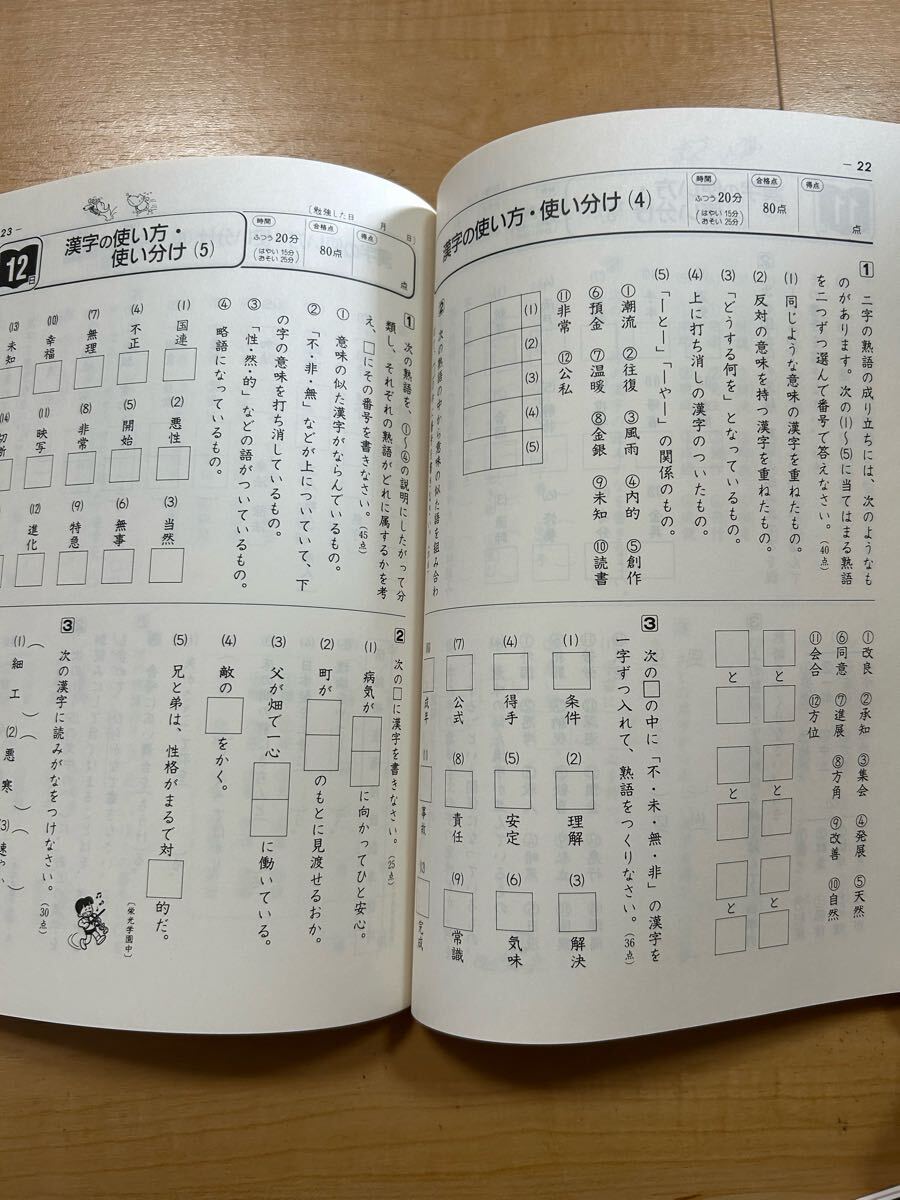 ― 22
漢字の使い方・使い分け (4)
時間
ふつう 20分
(はやい 15分
おそい 25分)
合格点
80点
得点
点
1 二字の熟語の成り立ちには、次のようなも
のがあります。次の(1)〜(5)に当てはまる熟語
を二つずつ選んで番号で答えなさい。(40点)
(1) 同じような意味の漢字を重ねたもの。
(2) 反対の意味を持つ漢字を重ねたもの。
(3) 「どうする何を」となっているもの。
(4) 上に打ち消しの漢字のついたもの。
(5) 「―と―」「―や―」の関係のもの。
①潮流 ②往復 ③風雨 ④内的 ⑤創作
⑥預金 ⑦温暖 ⑧金銀 ⑨未知 ⑩読書
⑪非常 ⑫公私
(1) (2) (3) (4) (5)
2 次の熟語の中から意味の似た語を組み合わ
①改良 ②承知 ③集会 ④発展 ⑤天然
⑥同意 ⑦進展 ⑧方角 ⑨改善 ⑩自然
⑪会合 ⑫方位
□と□ □と□ □と□
□と□ □と□ □と□
3 次の□の中に「不・未・無・非」の漢字を
一字ずつ入れて、熟語をつくりなさい。(36点)
(1) □条件 (2) □理解 (3) □解決
(4) □得手 (5) □安定 (6) □気味
(7) □公式 (8) □責任 (9) □常識
23 ―
12日
漢字の使い方・
使い分け (5)
〔勉強した日 月 日〕
時間
ふつう 20分
(はやい 15分
おそい 25分)
合格点
80点
得点
点
1 次の熟語を、①〜④の説明にしたがって分
類し、それぞれの熟語がどれに属するかを考
え、□にその番号を書きなさい。(45点)
① 意味の似た漢字がならんでいるもの。
② 「不・非・無」などが上についていて、下
の字の意味を打ち消しているもの。
③ 「性・然・的」などの語がついているもの。
④ 略語になっているもの。
(1) 国連□ (2) 悪性□ (3) 当然□
(4) 不正□ (5) 開始□ (6) 無事□
(7) 無理□ (8) 非常□ (9) 特急□
(10) 幸福□ (11) 映写□ (12) 進化□
(13) 未知 (14) 切断
2 次の□に漢字を書きなさい。(25点)
(1) 病気が□□に向かってひと安心。
(2) 町が□□のもとに見渡せるおか。
(3) 父が畑で一心□□に働いている。
(4) 敵の□をかく。
(5) 兄と弟は、性格がまるで対□的だ。
〔栄光学園中〕
3 次の漢字に読みがなをつけなさい。(30点)
(1) 細工( ) (2) 悪寒( ) (3)